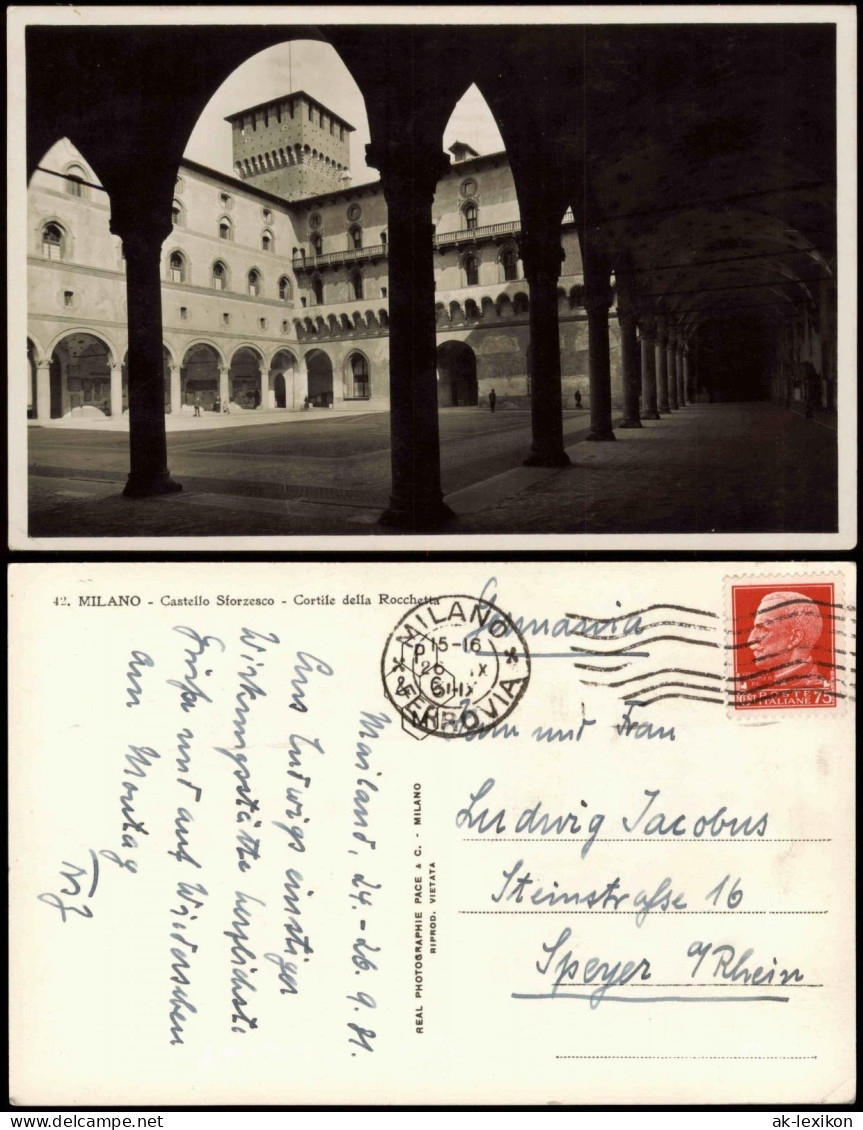 42. MILANO - Castello Sforzesco - Cortile della Rocchetta
Germania
MILANO
15-16
26 IX
FERROVIA
POSTE
ITALIANE
75
Mailand, 24.-26.9.31.
Aus Ludwigs einstiger
Wirkungsstätte herzlichste
Grüße und auf Wiedersehen
am Montag
REAL PHOTOGRAPHIE PACE & C. - MILANO
RIPROD. VIETATA
Herrn und Frau
Ludwig Jacobus
Steinstraße 16
Speyer a/Rhein
ak-lexikon